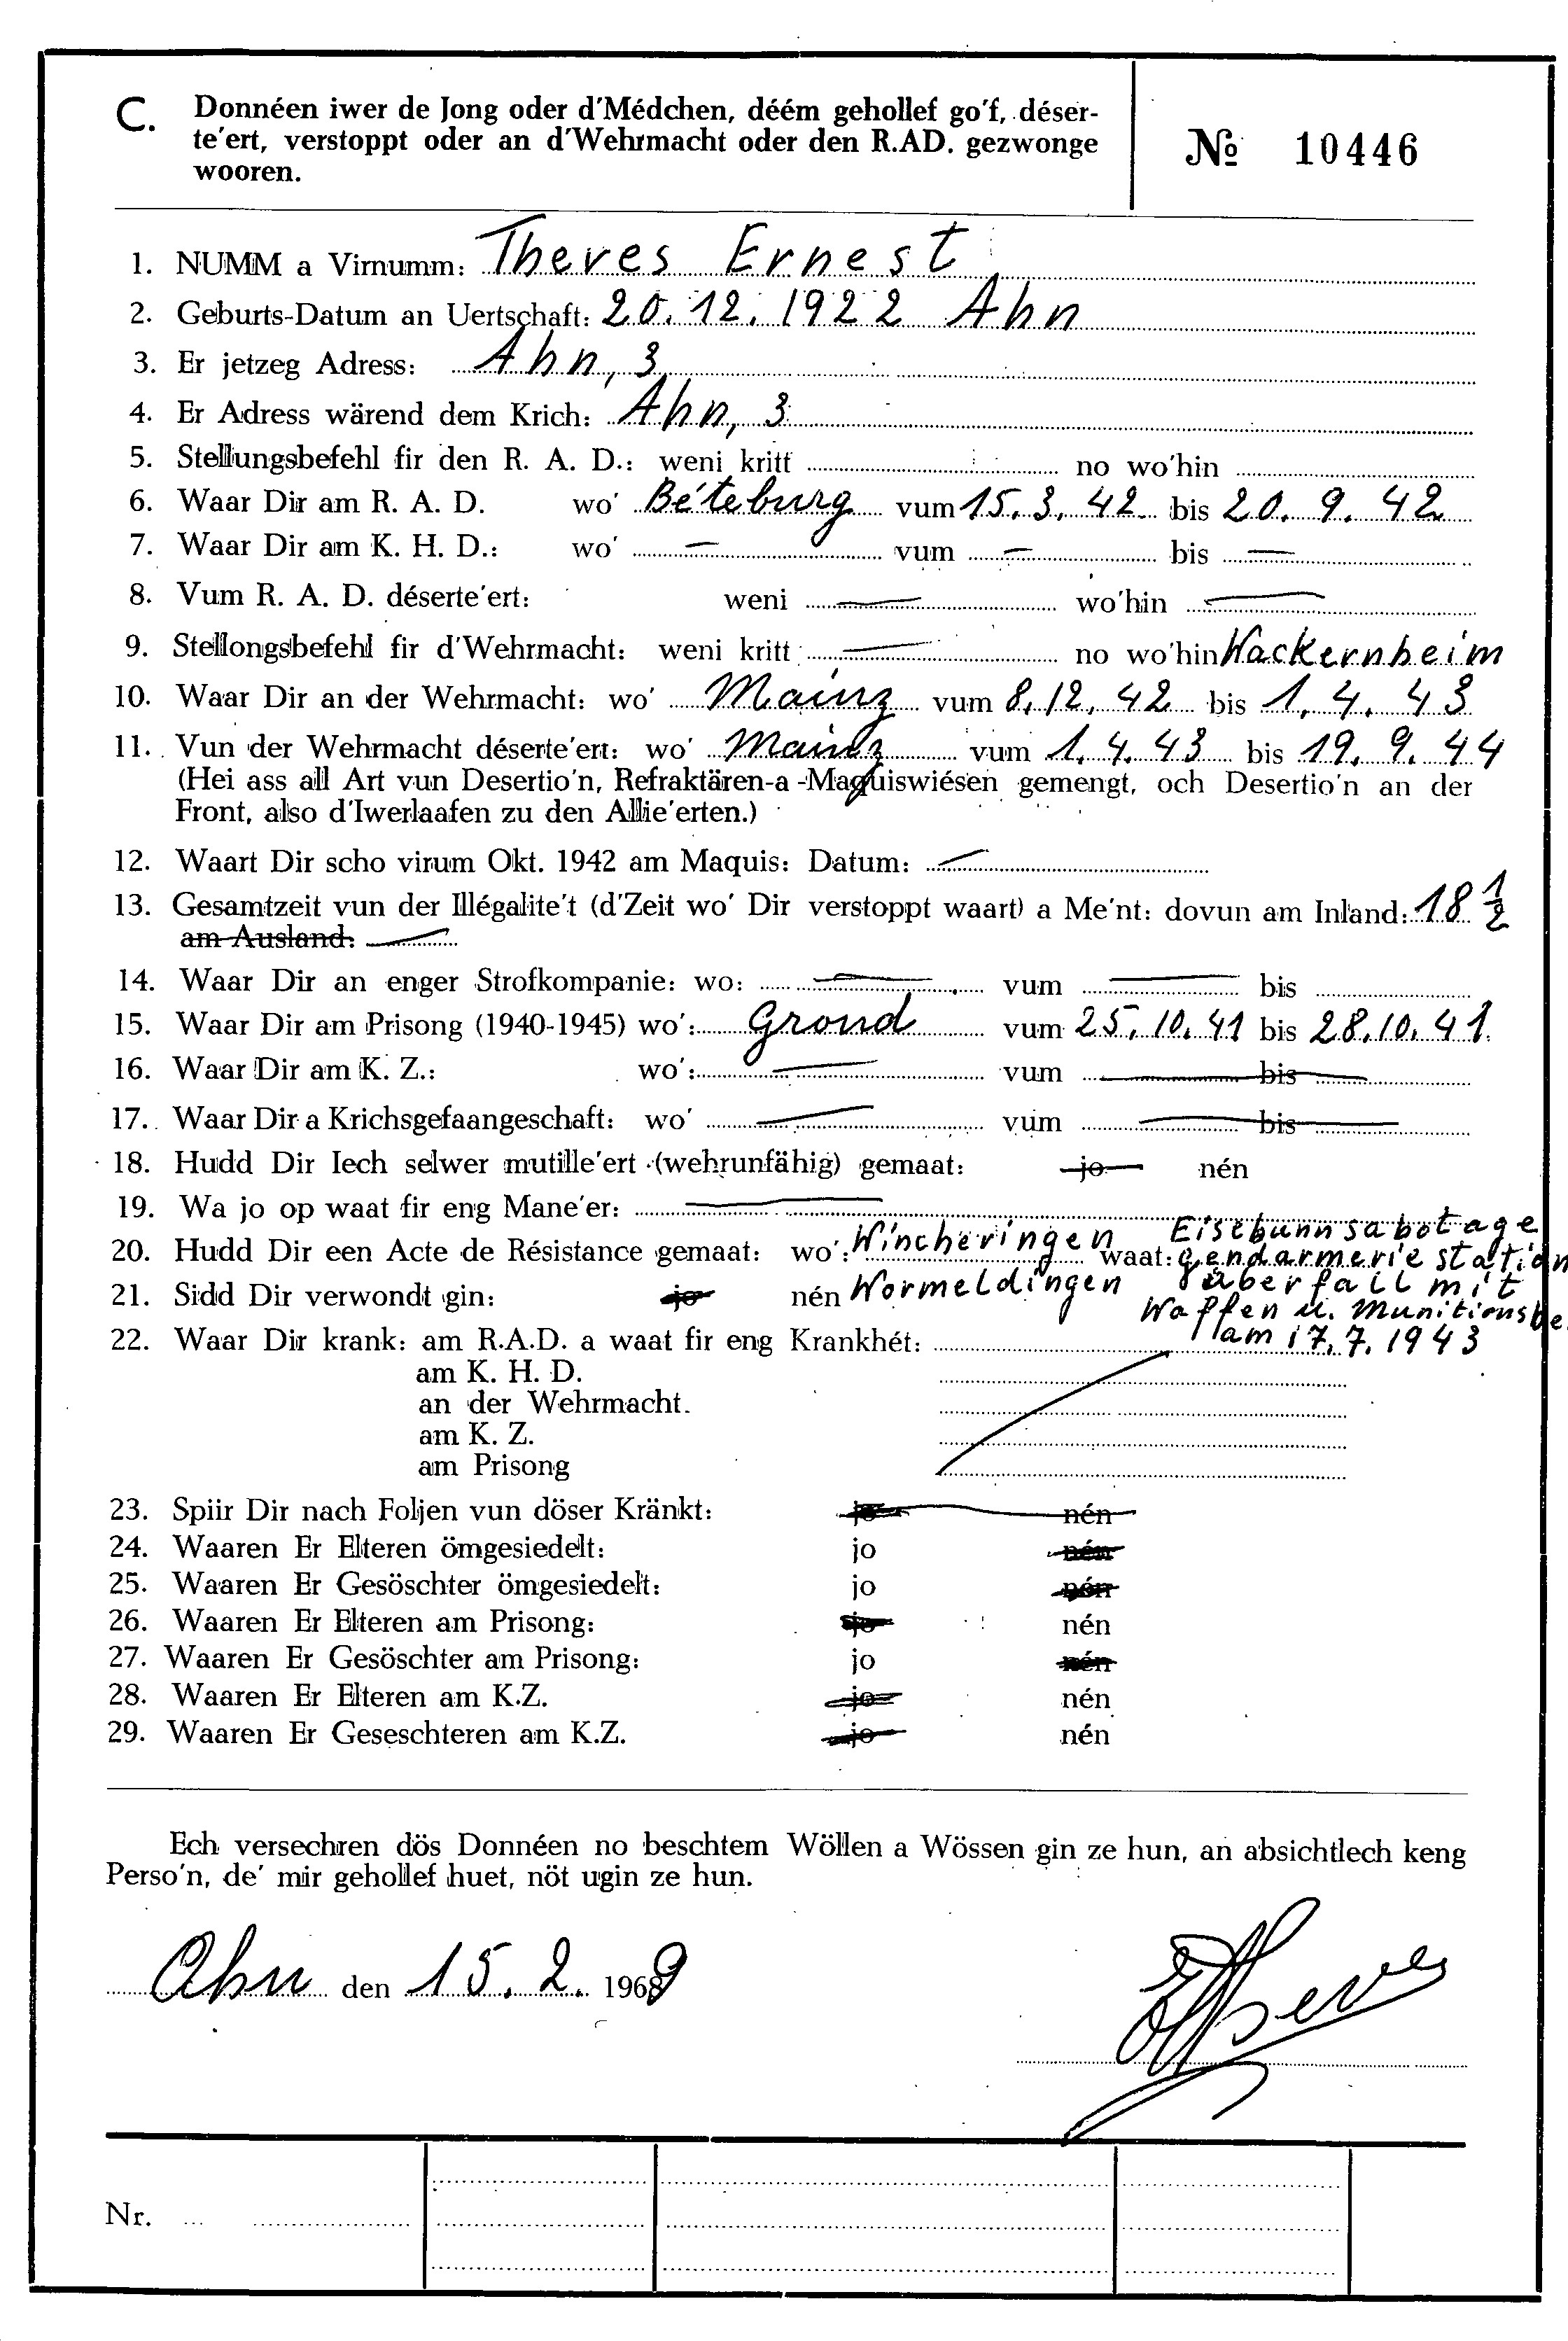 C. Donnéen iwer de Jong oder d'Médchen, déém gehollef go'f, déser-
te'ert, verstoppt oder an d'Wehrmacht oder den R.AD. gezwonge
wooren.
№ 10446
1. NUMM a Virnumm: Theves Ernest
2. Geburts-Datum an Uertschaft: 20.12.1922 Ahn
3. Er jetzeg Adress: Ahn, 3
4. Er Adress wärend dem Krich: Ahn, 3
5. Stellungsbefehl fir den R. A. D.: weni kritt no wo'hin
6. Waar Dir am R. A. D. wo' Béteburg vum 15.3.42 bis 20.9.42
7. Waar Dir am K. H. D.: wo' — vum — bis —
8. Vum R. A. D. déserte'ert: weni — wo'hin —
9. Stellongsbefehl fir d'Wehrmacht: weni kritt — no wo'hin Wackernheim
10. Waar Dir an der Wehrmacht: wo' Mainz vum 8.12.42 bis 1.4.43
11. Vun der Wehrmacht déserte'ert: wo' Mainz vum 1.4.43 bis 19.9.44
(Hei ass all Art vun Desertio'n, Refraktären-a -Maquiswiésen gemengt, och Desertio'n an der
Front, also d'Iwerlaafen zu den Allie'erten.)
12. Waart Dir scho virum Okt. 1942 am Maquis: Datum: —
13. Gesamtzeit vun der Illégalite't (d'Zeit wo' Dir verstoppt waart) a Me'nt: dovun am Inland: 18 1/2
am Ausland: —
14. Waar Dir an enger Strofkompanie: wo: — vum — bis
15. Waar Dir am Prisong (1940-1945) wo': Grond vum 25.10.41 bis 28.10.41.
16. Waar Dir am K. Z.: wo': — vum — bis —
17. Waar Dir a Krichsgefaangeschaft: wo' — vum — bis —
18. Hudd Dir Iech selwer mutille'ert (wehrunfähig) gemaat: jo nén
19. Wa jo op waat fir eng Mane'er: —
20. Hudd Dir een Acte de Résistance gemaat: wo': Wincheringen waat: Eisebunnsabotage
gendarmerie station
21. Sidd Dir verwondt gin: jo nén Wormeldingen überfall mit
Waffen u. Munitionsbe
22. Waar Dir krank: am R.A.D. a waat fir eng Krankhét: am 17.7.1943
am K. H. D.
an der Wehrmacht.
am K. Z.
am Prisong
23. Spiir Dir nach Foljen vun döser Kränkt: jo nén
24. Waaren Er Elteren ömgesiedelt: jo nén
25. Waaren Er Gesöschter ömgesiedelt: jo nén
26. Waaren Er Elteren am Prisong: jo nén
27. Waaren Er Gesöschter am Prisong: jo nén
28. Waaren Er Elteren am K.Z. jo nén
29. Waaren Er Geseschteren am K.Z. jo nén
Ech versechren dös Donnéen no beschtem Wöllen a Wössen gin ze hun, an absichtlech keng
Perso'n, de' mir gehollef huet, nöt ugin ze hun.
Ahn den 15.2. 1969
ETheves
Nr.